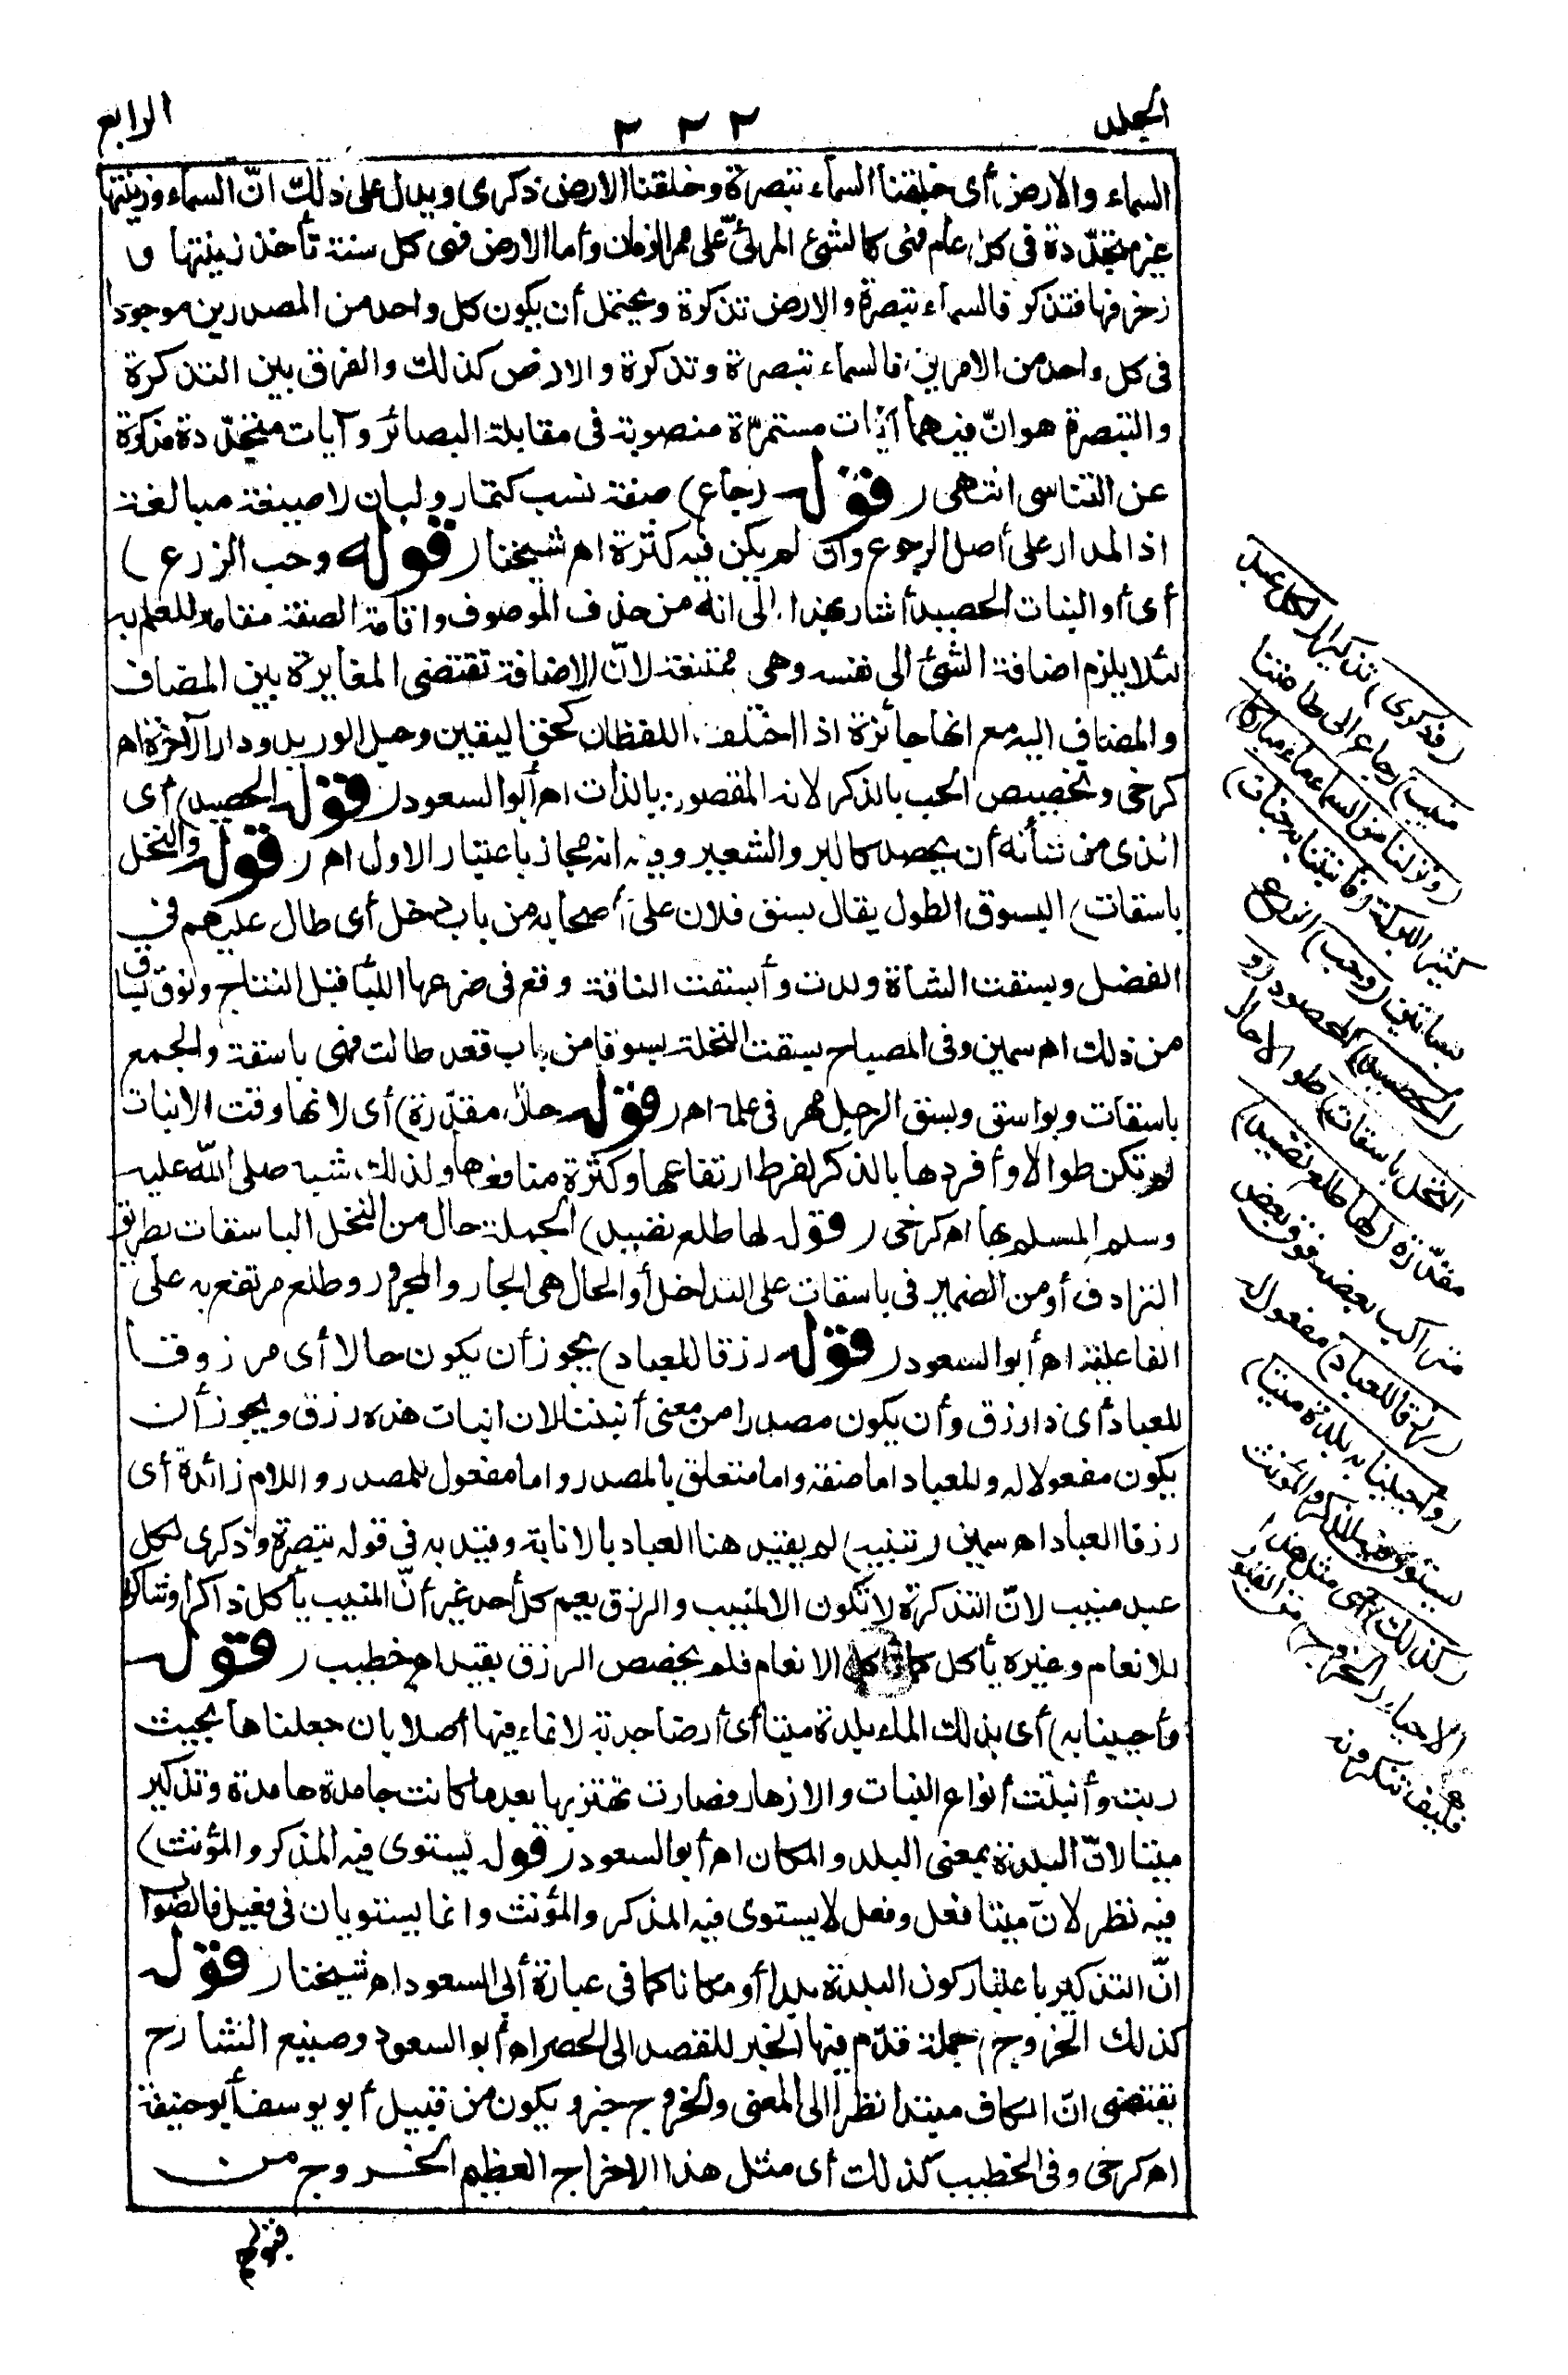 الجلد
٢٢٢
الرابع
السماء والارض أى خلقنا السماء تبصرة وخلقنا الارض ذكرى ويدل على ذلك انّ السماء وزينتها
غير متجدّدة فى كل عام فهى كالشئ المرئىّ على ممر الزمان وأما الارض فهى كل سنة تأخذ زينتها و
زخرفها فتذكر فالسماء تبصرة والارض تذكرة ويحتمل أن يكون كل واحد من المصدرين موجودا
فى كل واحد من الامرين فالسماء تبصرة وتذكرة والارض كذلك والفرق بين التذكرة
والتبصرة هو انّ فيهما آيات مستمرّة منصوبة فى مقابلة البصائر وآيات متجدّدة مذكرة
عن التناسى انتهى (قوله رجاع) صفة نسب كتمار ولبان لا صيغة مبالغة
اذ المدار على أصل الرجوع وان لم يكن فيه كثرة اه شيخنا (قوله وحب الزرع)
أى أو النبات الحصيد أشار بهذا الى انه من حذف الموصوف واقامة الصفة مقامه للعلم به
لئلا يلزم اضافة الشئ الى نفسه وهى ممتنعة لانّ الاضافة تقتضى المغايرة بين المضاف
والمضاف اليه مع انها جائزة اذا اختلف اللفظان كحق اليقين وحبل الوريد ودار الآخرة اه
كرخى وتخصيص الحب بالذكر لانه المقصود بالذات اه أبو السعود (قوله الحصيد) أى
الذى من شأنه أن يحصد كالبر والشعير وفيه انه مجاز باعتبار الاول اه (قوله والنخل
باسقات) البسوق الطول يقال بسق فلان على أصحابه من باب دخل أى طال عليهم فى
الفضل وبسقت الشاة ولدت وأبسقت الناقة وقع فى ضرعها اللبأ قبل النتاج ونوق بساق
من ذلك اه سمين وفى المصباح بسقت النخلة بسوقا من باب قعد طالت فهى باسقة والجمع
باسقات وبواسق وبسق الرجل مهر فى علمه اه (قوله حال مقدّرة) أى لانها وقت الانبات
لم تكن طوالا وأفردها بالذكر لفرط ارتفاعها وكثرة منافعها ولذلك شبه صلى الله عليه
وسلم المسلم بها اه كرخى (قوله لها طلع نضيد) الجملة حال من النخل الباسقات بطريق
الترادف أو من الضمير فى باسقات على التداخل أو الحال هى الجار والمجرور وطلع مرتفع به على
الفاعلية اه أبو السعود (قوله رزقا للعباد) يجوز أن يكون حالا أى مرزوقا
للعباد أى ذا رزق وأن يكون مصدرا من معنى أنبتنا لان انبات هذه رزق ويجوز أن
يكون مفعولا له وللعباد اما صفة واما متعلق بالمصدر واما مفعول للمصدر واللام زائدة أى
رزقا العباد اه سمين (تنبيه) لم يقيد هنا العباد بالانابة وقيد به فى قوله تبصرة وذكرى لكل
عبد منيب لانّ التذكرة لا تكون الا لمنيب والرزق يعم كل أحد غير أنّ المنيب يأكل ذاكرا وشاكرا
للانعام وغيره يأكل كما تأكل الانعام فلم يخصص الرزق بقيد اه خطيب (قوله
وأحيينا به) أى بذلك الماء بلدة ميتا أى أرضا جدبة لا نماء فيها أصلا بان جعلناها بحيث
ربت وأنبتت أنواع النبات والازهار فصارت تهتز بها بعد ما كانت جامدة هامدة وتذكير
ميتا لانّ البلدة بمعنى البلد والمكان اه أبو السعود (قوله يستوى فيه المذكر والمؤنث)
فيه نظر لانّ ميتا فعل وفعل لا يستوى فيه المذكر والمؤنث وانما يستويان فى فعيل فالصواب
انّ التذكير باعتبار كون البلدة بلدا أو مكانا كما فى عبارة أبى السعود اه شيخنا (قوله
كذلك الخروج) جملة قدّم فيها الخبر للقصد الى الحصر اه أبو السعود وصنيع الشارح
يقتضى انّ الكاف مبتدأ نظرا الى المعنى والخروج خبر ويكون من قبيل أبو يوسف أبو حنيفة
اه كرخى وفى الخطيب كذلك أى مثل هذا الاخراج العظيم الخروج من
قبورهم
(وذكرى) تذكيرا (لكل عبد
منيب) رجاع الى طاعتنا
(ونزلنا من السماء ماء مباركا)
كثير البركة (فأنبتنا به جنات)
بساتين (وحب) الزرع
(الحصيد) المحصود (و
النخل باسقات) طوالا حال
مقدّرة (لها طلع نضيد)
متراكب بعضه فوق بعض
(رزقا للعباد) مفعول له
(وأحيينا به بلدة ميتا)
يستوى فيه المذكر والمؤنث
(كذلك) أى مثل هذا
الاحياء (الخروج) من القبور
فكيف تنكرونه